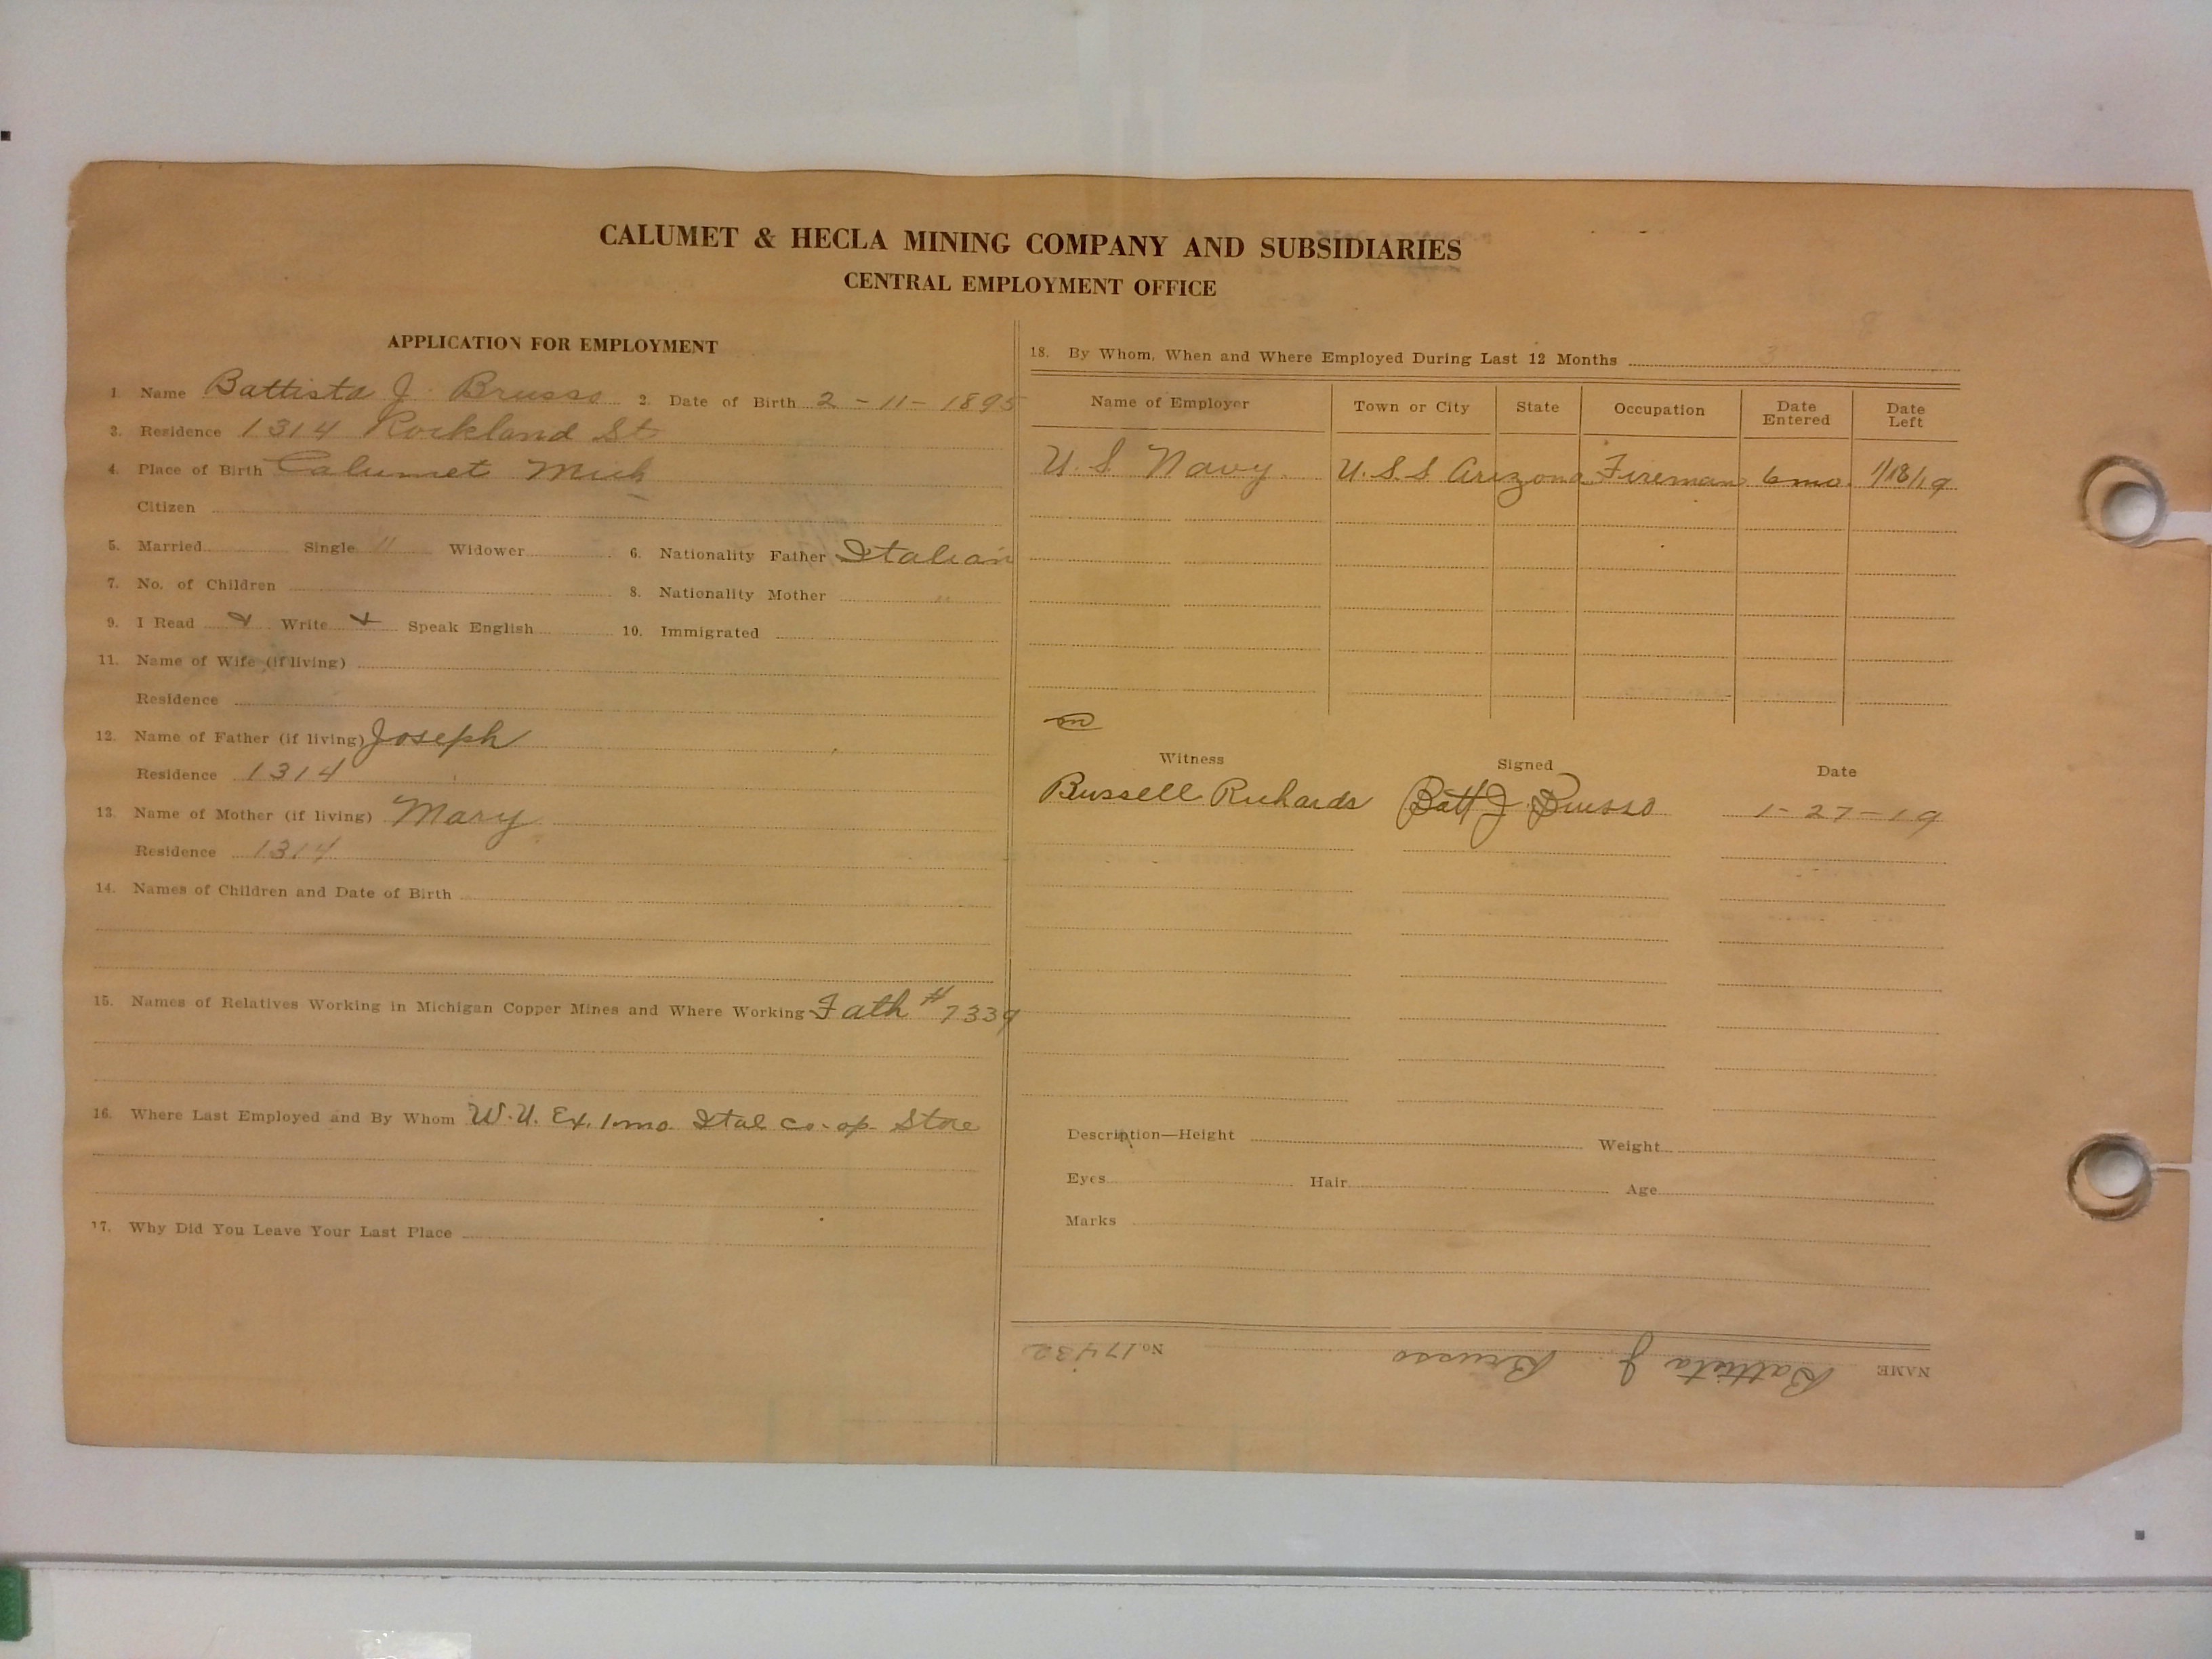 CALUMET & HECLA MINING COMPANY AND SUBSIDIARIES
CENTRAL EMPLOYMENT OFFICE
APPLICATION FOR EMPLOYMENT
1. Name Battista J. Brusso 2. Date of Birth 2 - 11 - 1895
3. Residence 1314 Rockland St
4. Place of Birth Calumet Mich
Citizen
5. Married Single " Widower 6. Nationality Father Italian
7. No. of Children 8. Nationality Mother "
9. I Read Write Speak English 10. Immigrated
11. Name of Wife (if living)
Residence
12. Name of Father (if living) Joseph
Residence 1314
13. Name of Mother (if living) Mary
Residence 1314
14. Names of Children and Date of Birth
15. Names of Relatives Working in Michigan Copper Mines and Where Working Fath # 7339
16. Where Last Employed and By Whom W.U. Ex. 1 mo. Ital co-op Store
17. Why Did You Leave Your Last Place
18. By Whom, When and Where Employed During Last 12 Months
Name of Employer Town or City State Occupation Date Entered Date Left
U.S. Navy U.S.S Arizona Fireman 6 mo. 1/18/19
Witness Signed Date
Russell Richards Batt J. Brusso 1-27-19
Description—Height Weight
Eyes Hair Age
Marks
NAME Battista J. Brusso No. 17432